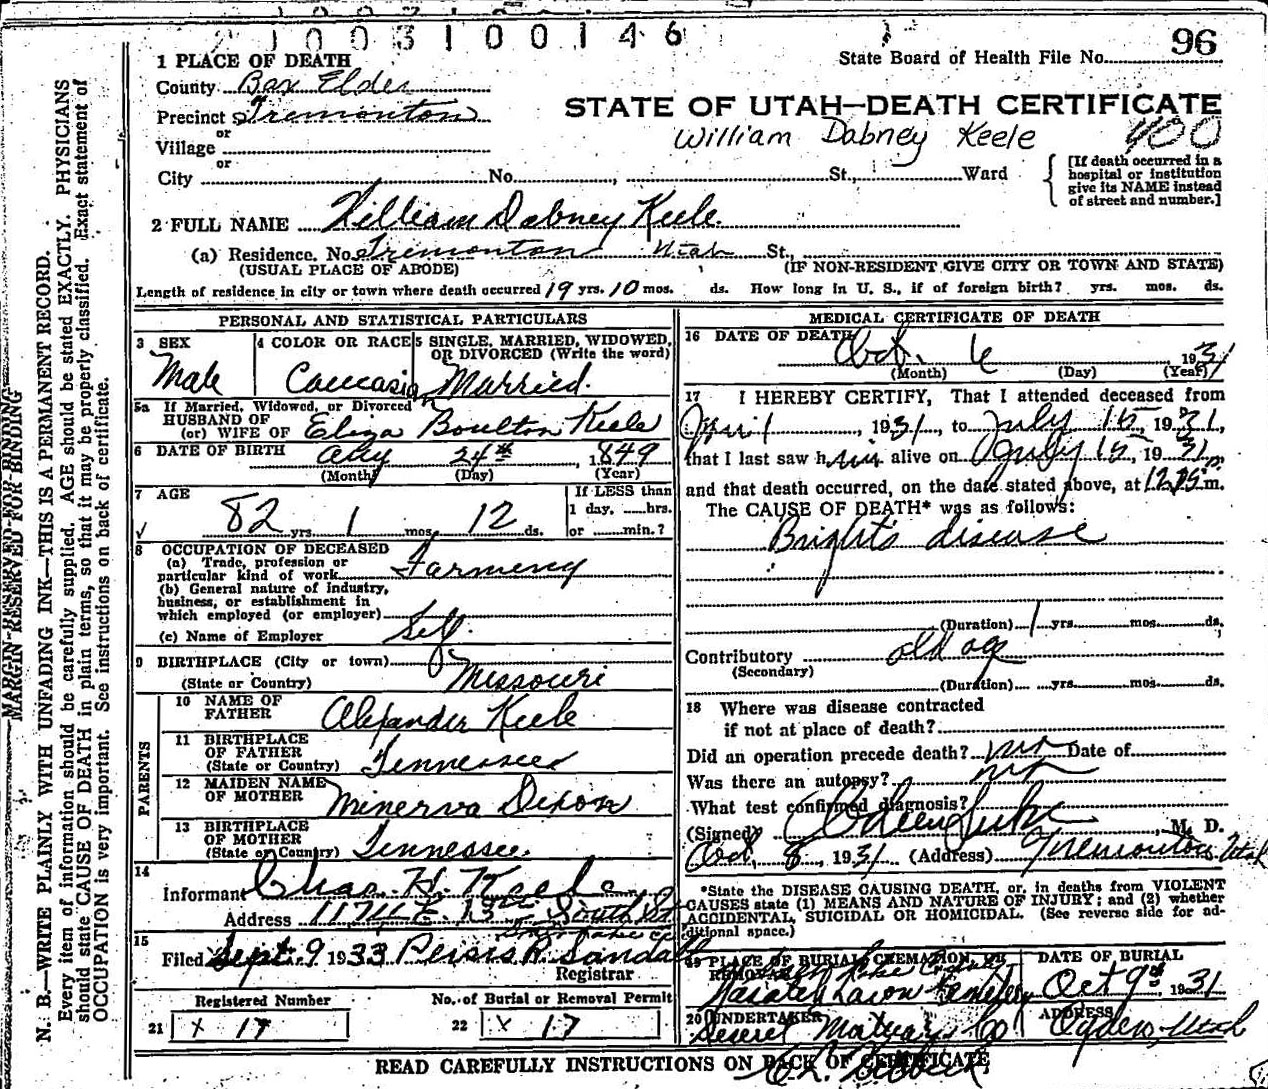 21003100146
State Board of Health File No. 96
1 PLACE OF DEATH
County Box Elder
Precinct Tremonton
or
Village
or
City No. St., Ward
STATE OF UTAH—DEATH CERTIFICATE
William Dabney Keele 400
[If death occurred in a
hospital or institution
give its NAME instead
of street and number.]
2 FULL NAME William Dabney Keele
(a) Residence. No. Tremonton Utah St.,
(USUAL PLACE OF ABODE) (IF NON-RESIDENT GIVE CITY OR TOWN AND STATE)
Length of residence in city or town where death occurred 19 yrs. 10 mos. ds. How long in U. S., if of foreign birth? yrs. mos. ds.
PERSONAL AND STATISTICAL PARTICULARS
3 SEX
Male
4 COLOR OR RACE
Caucasian
5 SINGLE, MARRIED, WIDOWED,
OR DIVORCED (Write the word)
Married.
5a If Married, Widowed, or Divorced
HUSBAND OF
(or) WIFE OF Eliza Boulton Keele
6 DATE OF BIRTH Aug 24th, 1849
(Month) (Day) (Year)
7 AGE
82 yrs. 1 mos. 12 ds.
If LESS than
1 day, hrs.
or min.?
8 OCCUPATION OF DECEASED
(a) Trade, profession or
particular kind of work Farming
(b) General nature of industry,
business, or establishment in
which employed (or employer)
(c) Name of Employer Self.
9 BIRTHPLACE (City or town)
(State or Country) Missouri
PARENTS
10 NAME OF
FATHER Alexander Keele
11 BIRTHPLACE
OF FATHER
(State or Country) Tennessee
12 MAIDEN NAME
OF MOTHER Minerva Dixon
13 BIRTHPLACE
OF MOTHER
(State or Country) Tennessee.
14
Informant Chas. H. Keele
Address 1174 E. 13th South St
15
Filed Sept. 9 1933 Persis R. Sandall
Registrar
Registered Number
21 x 17
No. of Burial or Removal Permit
22 x 17
MEDICAL CERTIFICATE OF DEATH
16 DATE OF DEATH
Oct. 6 1931
(Month) (Day) (Year)
17 I HEREBY CERTIFY, That I attended deceased from
April, 1931, to July 15, 1931,
that I last saw him alive on July 15, 1931,
and that death occurred, on the date stated above, at m.
The CAUSE OF DEATH* was as follows:
Bright's disease
(Duration) 1 yrs. mos. ds.
Contributory old age
(Secondary)
(Duration) yrs. mos. ds.
18 Where was disease contracted
if not at place of death?
Did an operation precede death? no Date of
Was there an autopsy? no
What test confirmed diagnosis?
(Signed) Odeen Luke, M. D.
Oct. 8, 1931 (Address) Tremonton Utah
*State the DISEASE CAUSING DEATH, or, in deaths from VIOLENT
CAUSES state (1) MEANS AND NATURE OF INJURY; and (2) whether
ACCIDENTAL, SUICIDAL OR HOMICIDAL. (See reverse side for ad-
ditional space.)
19 PLACE OF BURIAL, CREMATION, OR
REMOVAL
Cemetery
DATE OF BURIAL
Oct 9th, 1931
20 UNDERTAKER
Deseret Mortuary Co
ADDRESS
Ogden, Utah
READ CAREFULLY INSTRUCTIONS ON BACK OF CERTIFICATE
MARGIN RESERVED FOR BINDING
MARGIN RESERVED FOR BINDING
N. B.—WRITE PLAINLY WITH UNFADING INK—THIS IS A PERMANENT RECORD.
Every item of information should be carefully supplied. AGE should be stated EXACTLY. PHYSICIANS
should state CAUSE OF DEATH in plain terms, so that it may be properly classified. Exact statement of
OCCUPATION is very important. See instructions on back of certificate.